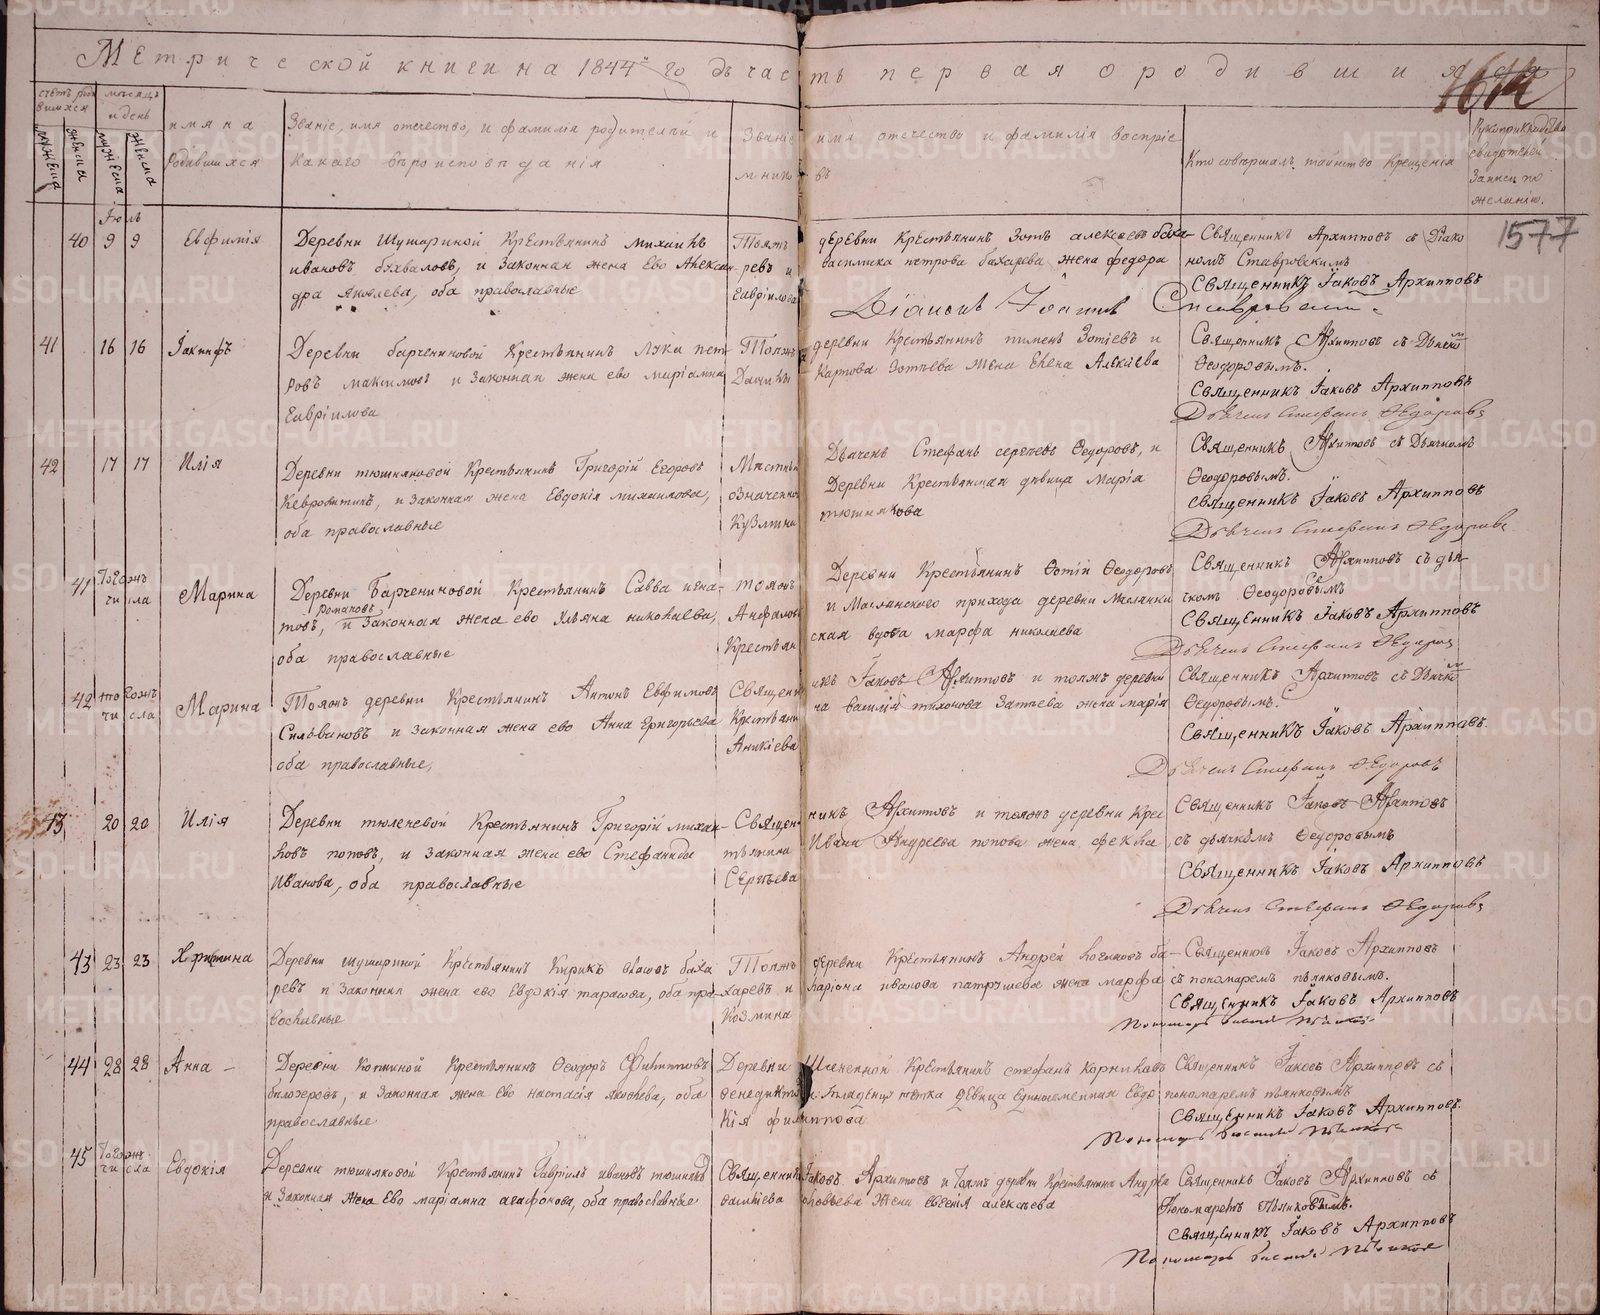 Метрической книги на 1844й годъ часть первая о родившихся
1577
счетъ родившихся
мѣсяцъ и день
имяна родившихся
Званіе, имя отечество, и фамилія родителей и какаго вѣроисповѣданія
Званіе имя отечество и фамилія воспріемниковъ
Кто совершалъ таинство крещенія
Рукоприкладство свидѣтелей записи по желанію.
мужеска женска мужеска женска
Іюль
40 9 9 Евфимія
Деревни Шушариной Крестьянинъ Михаилъ
ивановъ и законная жена Ево Алексан-
дра Яковлева, оба православные
Тояжъ деревни Крестьянинъ Зотъ алексѣевъ
петрова бахарева жена федора
Гавріилова
Священникъ Архипповъ съ Діако
номъ Ставровскимъ
Священникъ Іаковъ Архипповъ
Діаконъ Іоаннъ Ставровскій
41 16 16 Іакинфъ
Деревни барчениновой Крестьянинъ Лука пет
ровъ и законная жена ево маріамна
Гавріилова
Тояжъ деревни Крестьянинъ пименъ Зотіевъ и
Зотѣева жена Елена Алексіева
Священникъ Архипповъ съ Дьячко
Ѳеодоровымъ.
Священникъ Іаковъ Архипповъ
Дьячекъ Стефанъ Ѳедоровъ
42 17 17 Илія
Деревни тюшняковой Крестьянинъ Григорій Егоровъ
и законная жена Евдокія михаилова,
оба православные
Дьячекъ Стефанъ сергѣевъ Ѳеодоровъ, и
означенной Деревни Крестьянская дѣвица Марія
Кузмина тюшнякова
Священникъ Архипповъ съ Дьячкомъ
Ѳеодоровымъ.
Священникъ Іаковъ Архипповъ
Дьячекъ Стефанъ Ѳедоровъ
41 Тогожъ числа Марина
Деревни Барчениновой Крестьянинъ Савва игна-
Романовъ
товъ, и законная жена ево Ульяна николаева,
оба православные
тояжъ Деревни Крестьянинъ Ѳеодоровъ
и Маслянского прихода деревни
Крестьянская вдова марфа николаева
Священникъ Архипповъ съ дья
чкомъ Ѳеодоровымъ
Священникъ Іаковъ Архипповъ
Дьячекъ Стефанъ Ѳедоровъ
42 тогожъ числа Марина
Тояжъ деревни Крестьянинъ Антонъ Евфимовъ
Сильвановъ и законная жена ево Анна Григорьева
оба православные,
Священникъ Іаковъ Архипповъ и тояжъ деревни
Крестьянина василія тихонова Затѣева жена марія
Аникіева
Священникъ Архипповъ съ Дьячко
Ѳедоровымъ.
Священникъ Іаковъ Архипповъ.
Дьячекъ Стефанъ Ѳедоровъ
43 20 20 Илія
Деревни тюленевой Крестьянинъ Григорій михаи-
ловъ поповъ, и законная жена ево Стефанида
Иванова, оба православные
Священникъ Архипповъ и тояжъ деревни Крес
тьянина Ивана Андреева попова жена, фекла
Сергѣева
Священникъ Іаковъ Архипповъ
съ дьячкомъ Ѳеодоровымъ
Священникъ Іаковъ Архипповъ
Дьячекъ Стефанъ Ѳедоровъ
43 23 23 Харитина
Деревни шушариной Крестьянинъ Кирикъ баха
ревъ и законная жена ево Евдокія тарасова, оба пра-
вославные
Тояжъ деревни Крестьянинъ Андрей ба-
харевъ и иванова патрушева жена марфа
Козмина
Священникъ Іаковъ Архипповъ
съ пономаремъ пьянковымъ.
Священникъ Іаковъ Архипповъ
Пономарь василій Пьянковъ
44 28 28 Анна
Деревни Крестьянинъ Ѳеодоръ Филипповъ
билозеровъ, и законная жена Ево настасія яковлева, оба
православные
Деревни Крестьянинъ стефанъ Корниловъ
и младенцу тетка Девица Единоименная Евдо
кія филиппова
Священникъ Іаковъ Архипповъ съ
пономаремъ пьянковымъ
Священникъ Іаковъ Архипповъ.
Пономарь василій Пьянковъ
45 Тогожъ числа Евдокія
Деревни тюшняковой Крестьянинъ Гавріилъ ивановъ
и законная жена Ево маріамна агафонова, оба православные
Священникъ Іаковъ Архипповъ и тояжъ деревни Крестьянина Андрея
жена евгенія алексѣева
Священникъ Іаковъ Архипповъ съ
Пономаремъ Пьянковымъ.
Священникъ Іаковъ Архипповъ
Пономарь василій Пьянковъ
METRIKI.GASO-URAL.RU